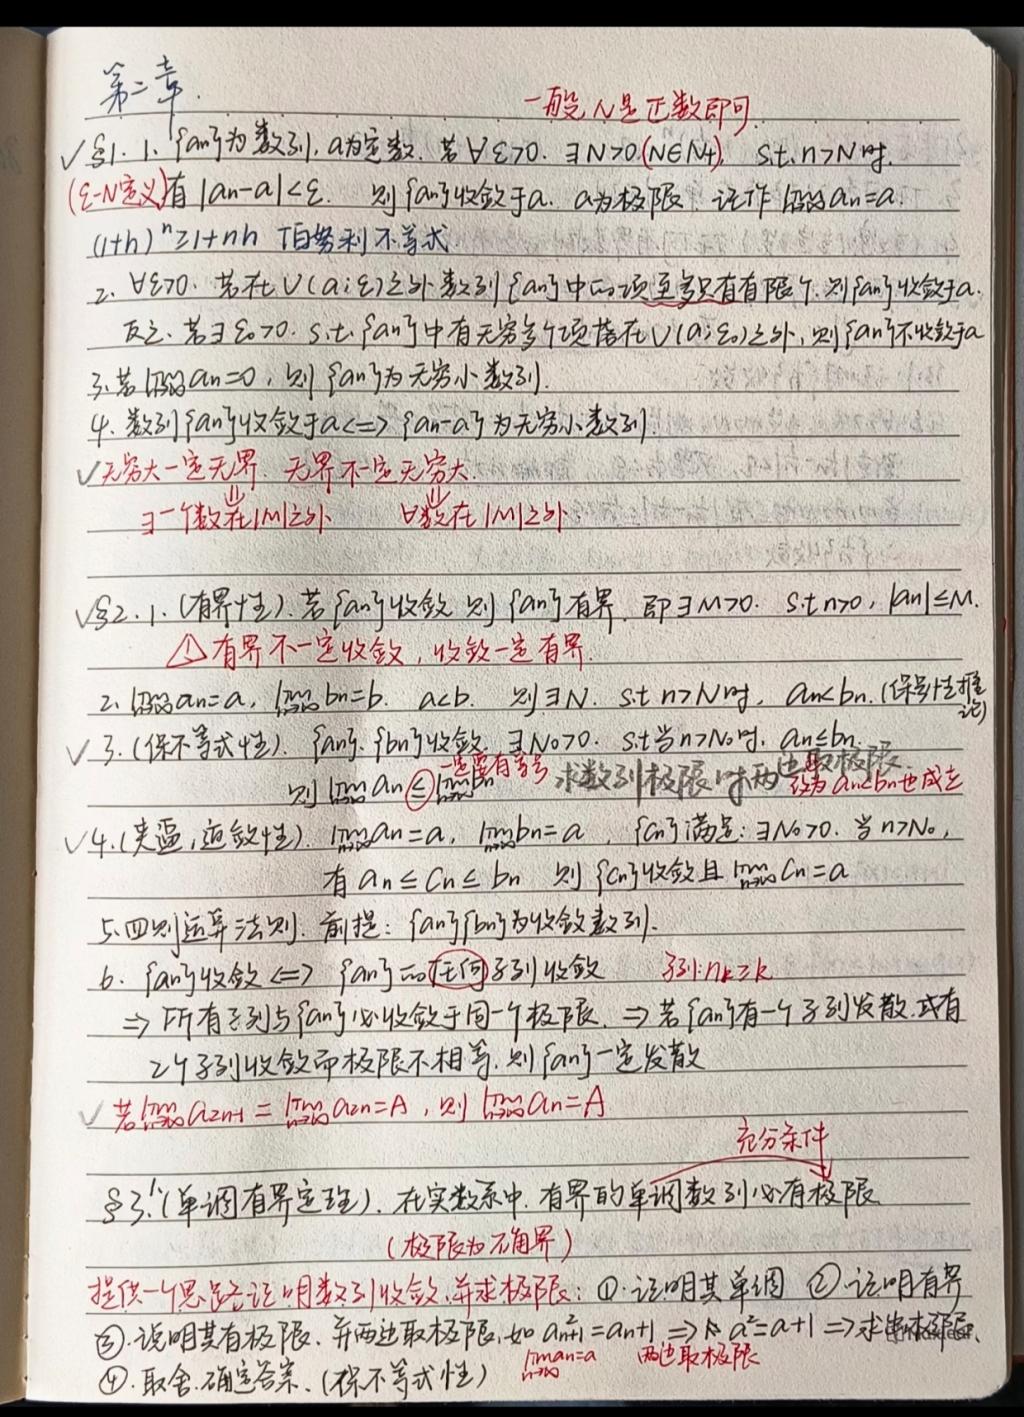 第二章.
一般N是正数即可
√§1. 1. {an}为数列, a为定数. 若∀ε>0. ∃N>0.(N∈N+), s.t. n>N时.
(ε-N定义)有|an-a|<ε. 则{an}收敛于a. a为极限 记作 lim n→∞ an=a.
(1+h)ⁿ≥1+nh 伯努利不等式
2. ∀ε>0. 若在U(a;ε)之外数列{an}中的项至多只有有限个. 则{an}收敛于a.
反之. 若∃ε₀>0. s.t. {an}中有无穷多个项落在U(a;ε₀)之外, 则{an}不收敛于a
3. 若 lim n→∞ an=0, 则{an}为无穷小数列.
4. 数列{an}收敛于a<=>{an-a}为无穷小数列.
√无穷大一定无界. 无界不一定无穷大.
∃一个数在|M|之外 ∀数在|M|之外
√§2. 1. (有界性). 若{an}收敛 则{an}有界. 即∃M>0. s.t n>0, |an|≤M.
⚠有界不一定收敛, 收敛一定有界.
2. lim n→∞ an=a, lim n→∞ bn=b. a<b. 则∃N. s.t n>N时, an<bn. (保号性推论)
√3. (保不等式性). {an}. {bn}收敛. ∃N₀>0. s.t当n>N₀时. an≤bn.
则 lim n→∞ an ≤ lim n→∞ bn 一定要有等号 求数列极限时两边取极限. 改为an<bn也成立
√4. (夹逼, 迫敛性). lim n→∞ an=a, lim n→∞ bn=a, {cn}满足: ∃N₀>0. 当n>N₀,
有an≤cn≤bn 则{cn}收敛且 lim n→∞ cn=a
5. 四则运算法则. 前提: {an}{bn}为收敛数列.
6. {an}收敛<=>{an}的任何子列收敛 子列: nk≥k
⇒所有子列与{an}必收敛于同一个极限. ⇒若{an}有一个子列发散. 或有
2个子列收敛而极限不相等. 则{an}一定发散
√若 lim n→∞ a2n-1 = lim n→∞ a2n=A, 则 lim n→∞ an=A
充分条件
§3. 1. (单调有界定理). 在实数系中. 有界的单调数列必有极限
(极限为确界)
提供一个思路证明数列收敛. 并求极限: ①. 证明其单调 ②. 证明有界
③. 说明其有极限. 并两边取极限, 如 a²n+1=an+1 ⇒ a²=a+1 ⇒求出极限.
lim n→∞ an=a 两边取极限
④. 取舍. 确定答案. (保不等式性)